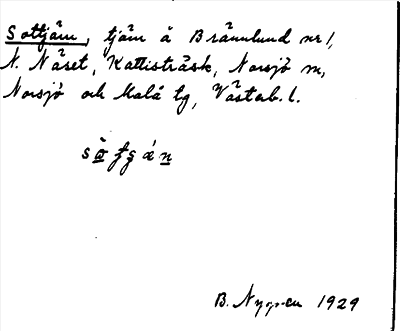 Sottjärn, tjärn å Brännlund nr 1,
N. Näset, Kattisträsk, Norsjö sn,
Norsjö och Malå tg, Västerb. l.
B. Nygren 1929